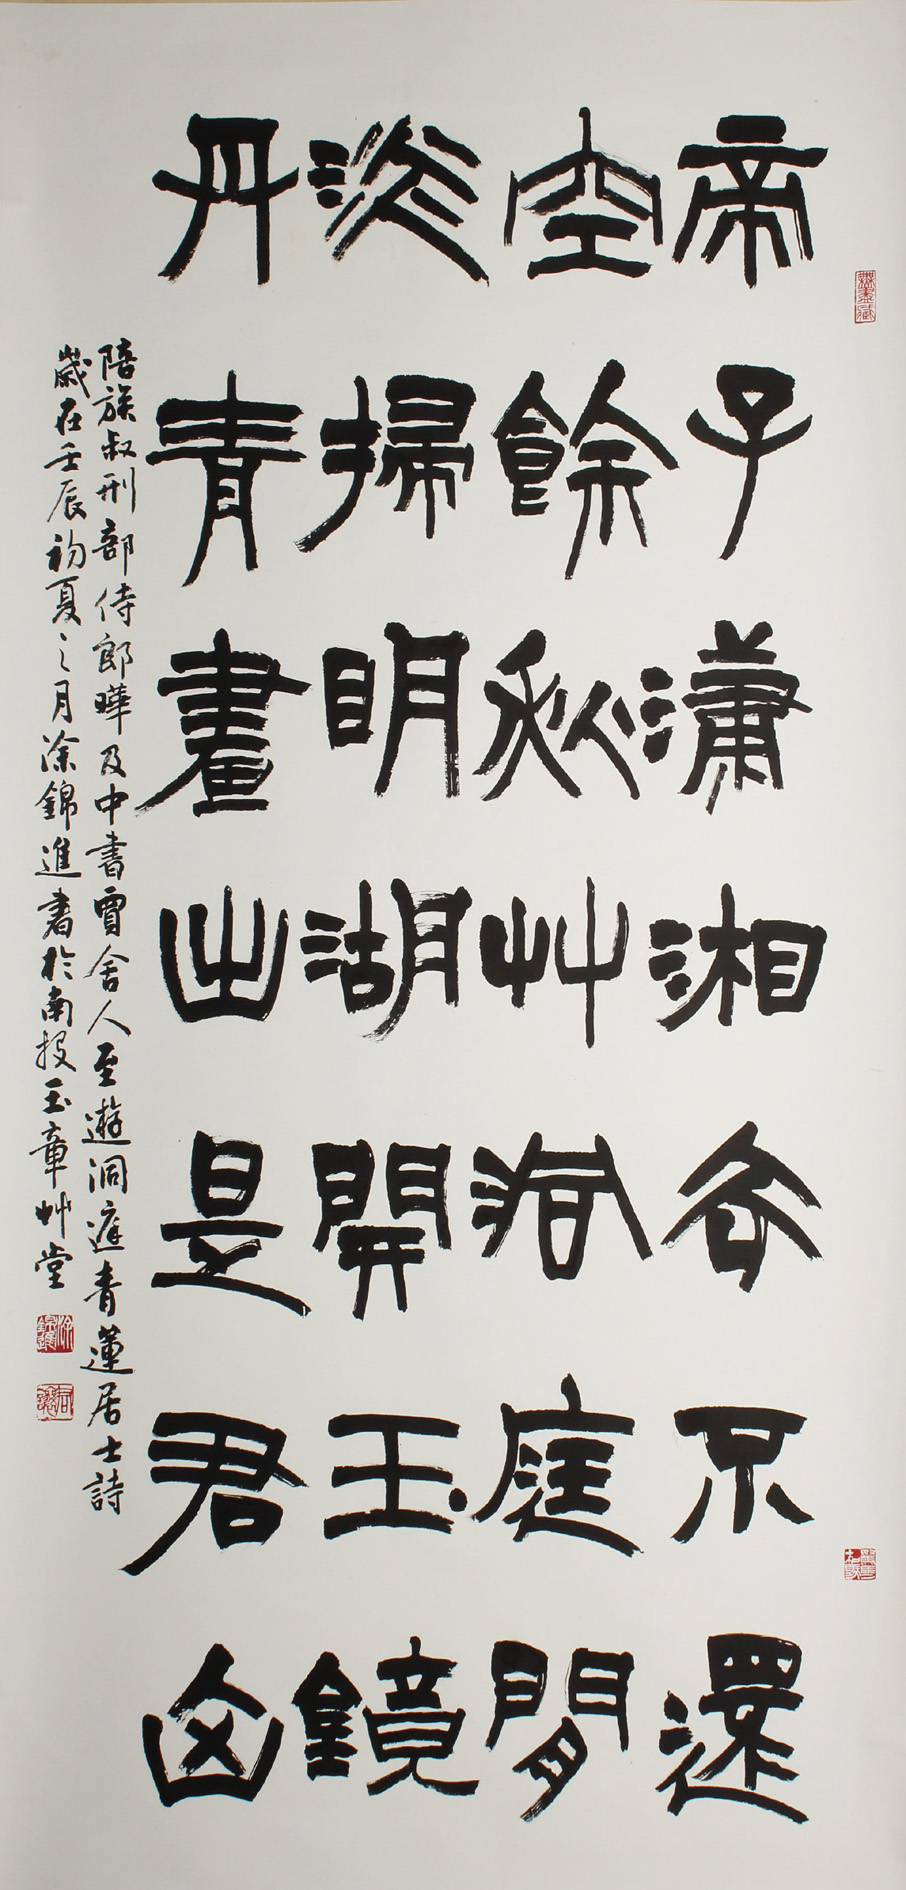 帝子瀟湘去不還
空餘秋艸洞庭閒
淡掃明湖開玉鏡
丹青畫出是君山
陪族叔刑部侍郎曄及中書賈舍人至遊洞庭青蓮居士詩
歲在壬辰初夏之月涂錦進書於南投玉章艸堂
無盡藏
涂錦進